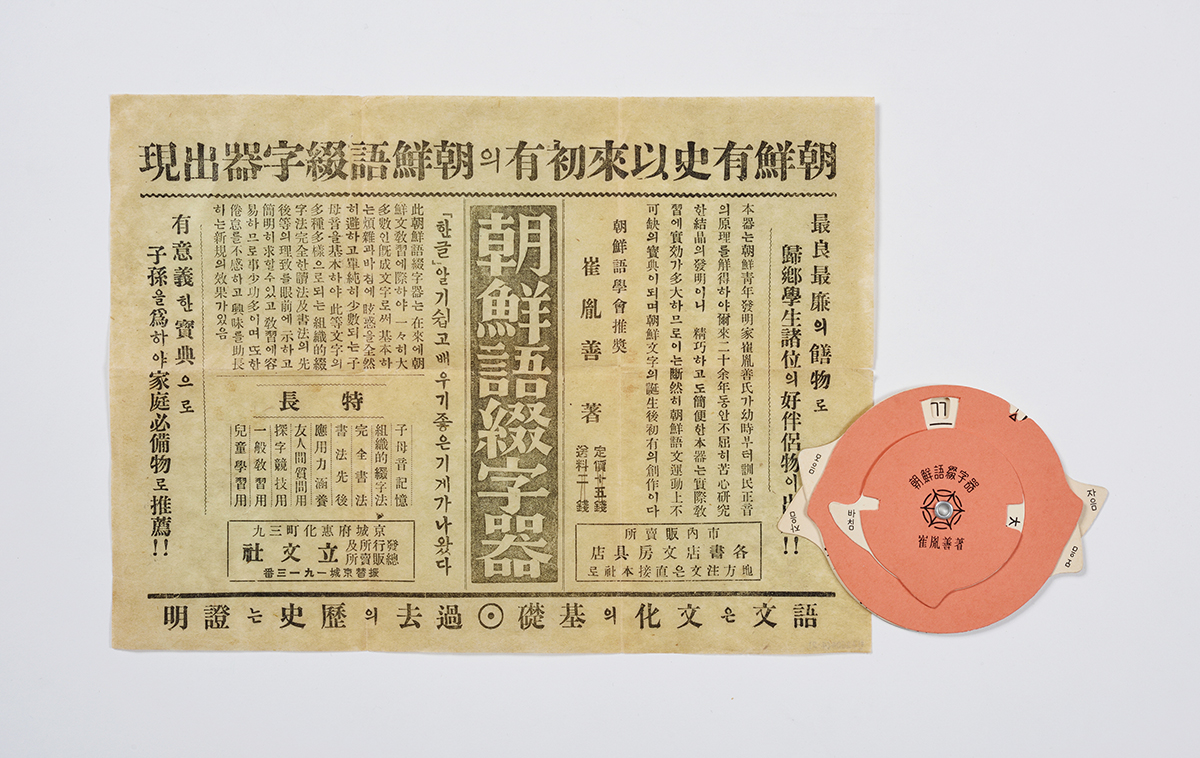 朝鮮有史以來初有의朝鮮語綴字器出現
最良最廉의 饍物로
歸鄕學生諸位의 好伴侶物이
!!
本器는 朝鮮靑年發明家崔胤善氏가 幼時부터 訓民正音
의 原理를 鮮得하야 爾來二十余年동안 不屈히 苦心硏究
한 結晶의 發明이니 精巧하고도 簡便한 本器는 實際敎
習에 實効가 多大하므로 이는 斷然히 朝鮮語文運動上 不
可缺의 寶典이 되며 朝鮮文字의 誕生後初有의 創作이다
朝鮮語學會推奬
崔胤善 著
定價十五錢
送料二錢
市內販賣所
各書店文房具店
地方注文은直接本社로
朝鮮語綴字器
「한글」알기쉽고 배우기좋은기게가나왔다
此朝鮮語綴字器는 在來에朝
鮮文敎習에際하야 一々히大
多數인旣成文字로써 基本하
는煩雜과바침에 眩惑을全然
히避하고 單純히 少數되는 子
母音을基本하야 此等文字의
多種多樣으로되는 組織的綴
字法完全한讀法及書法의先
後等의理致를眼前에 示하고
簡明히求할수있고 敎習에容
易하므로事少功多이며 또한
倦怠를不感하고興味를助長
하는新規의效果가있음
特長
子母音記憶
組織的綴字法
完全書法
書法先後
應用力涵養
友人間質問用
探字競技用
一般敎習用
兒童學習用
京城府惠化町三九
發行所及總販賣所 立文社
振替京城一九一三番
有意義한寶典으로
子孫을爲하야家庭必備物로推薦!!
語文은文化의基礎⊙過去의歷史는證明
ㄲ
朝鮮語綴字器
崔胤善著
바침
ㅊ